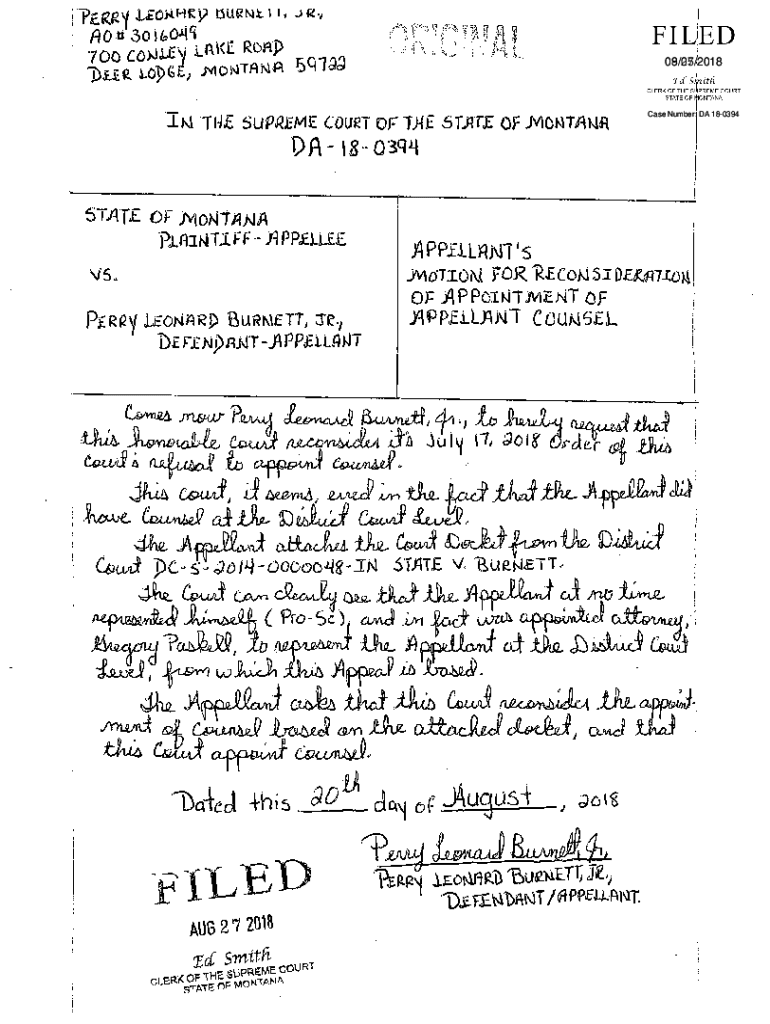 PERRY LEONARD BURNETT, JR.,
AO# 3016049
700 CONLEY LAKE ROAD
DEER LODGE, MONTANA 59722
ORIGINAL
FILED
08/2018
Ed Smith
CLERK OF THE SUPREME COURT
STATE OF MONTANA
Case Number: DA 18-0394
IN THE SUPREME COURT OF THE STATE OF MONTANA
DA-18-0394
STATE OF MONTANA
PLAINTIFF-APPELLEE
VS.
PERRY LEONARD BURNETT, JR.,
DEFENDANT-APPELLANT
APPELLANT'S
MOTION FOR RECONSIDERATION
OF APPOINTMENT OF
APPELLANT COUNSEL
Comes now Perry Leonard Burnett, Jr., to hereby request that
this honorable Court reconsider it's July 17, 2018 Order of this
Court's refusal to appoint counsel.
This court, it seems, erred in the fact that the Appellant did
have Counsel at the District Court Level.
The Appellant attaches the Court Docket from the District
Court DC-S-2014-0000048-IN STATE V. BURNETT.
The Court can clearly see that the Appellant at no time
represented himself (Pro-Se), and in fact was appointed attorney,
Gregory Paskell, to represent the Appellant at the District Court
Level, from which this Appeal is based.
The Appellant asks that this Court reconsider the appoint-
ment of Counsel based on the attached docket, and that
this Court appoint counsel.
Dated this 20th day of August, 2018
Perry Leonard Burnett, Jr.
PERRY LEONARD BURNETT, JR.,
DEFENDANT/APPELLANT.
FILED
AUG 27 2018
Ed Smith
CLERK OF THE SUPREME COURT
STATE OF MONTANA